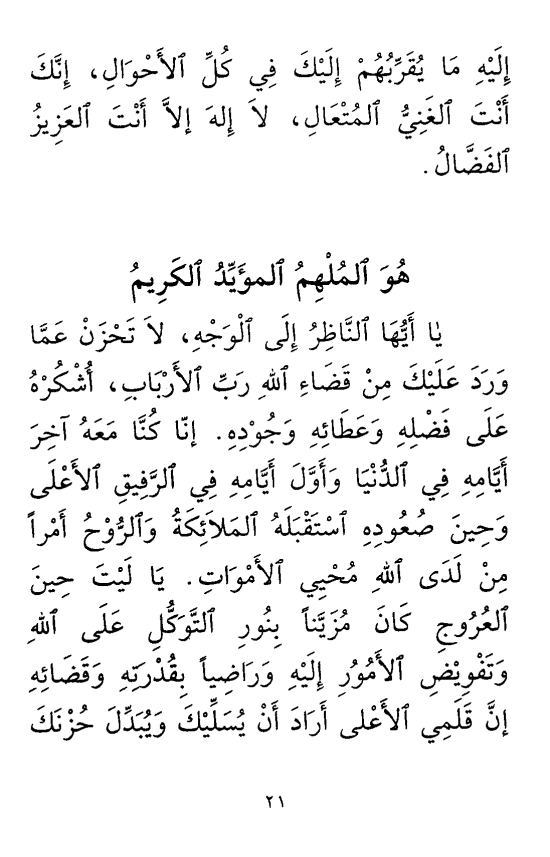 إِلَيْهِ مَا يُقَرِّبُهُمْ إِلَيْكَ فِي كُلِّ ٱلأَحْوَالِ، إِنَّكَ
أَنْتَ ٱلغَنِيُّ ٱلمُتْعَالِ، لاَ إِلهَ إلاَّ أَنْتَ ٱلعَزِيزُ
ٱلفَضَّالُ.
هُوَ ٱلمُلْهِمُ ٱلمؤَيِّدُ ٱلكَرِيمُ
يٰا أَيُّهَا ٱلنَّاظِرُ إِلَى ٱلْوَجْهِ، لاَ تَحْزَنْ عَمَّا
وَرَدَ عَلَيْكَ مِنْ قَضَاءِ ٱللهِ رَبِّ ٱلأَرْبَابِ، أُشْكُرْهُ
عَلَى فَضْلِهِ وَعَطَائِهِ وَجُوْدِهِ. إنّا كُنَّا مَعَهُ آخِرَ
أَيَّامِهِ فِي ٱلدُّنْيَا وَأَوَّلَ أَيَّامِهِ فِي ٱلرَّفِيقِ ٱلأَعْلَى
وَحِينَ صُعُودِهِ ٱسْتَقْبَلَهُ ٱلمَلاَئِكَةُ وَٱلرُّوْحُ أَمْراً
مِنْ لَدَى ٱللهِ مُحْيِي ٱلأَمْوَاتِ. يَا لَيْتَ حِينَ
ٱلعُرُوجِ كَانَ مُزَيَّناً بِنُورِ ٱلتَّوَكُّلِ عَلَى ٱللهِ
وَتَفْوِيْضِ ٱلأُمُوُرِ إِلَيْهِ وَرَاضِياً بِقُدْرَتِهِ وَقَضَائِهِ
إنَّ قَلَمِي ٱلأَعْلى أَرَادَ أَنْ يُسَلِّيْكَ وَيُبَدِّلَ حُزْنَكَ
٢١